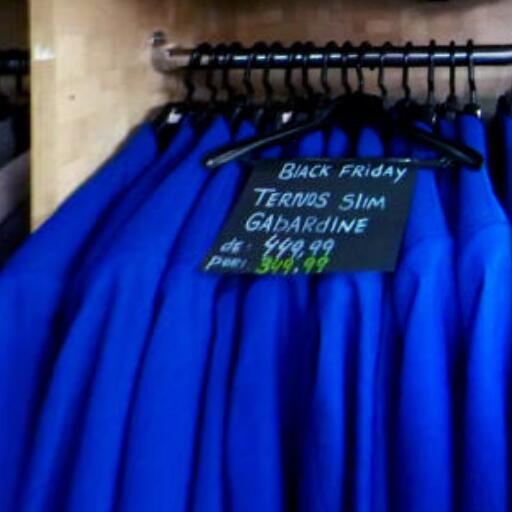 BLACK FRIDAY
TERNOS SLIM
GABARDINE
DE: 449,99
POR: 349,99